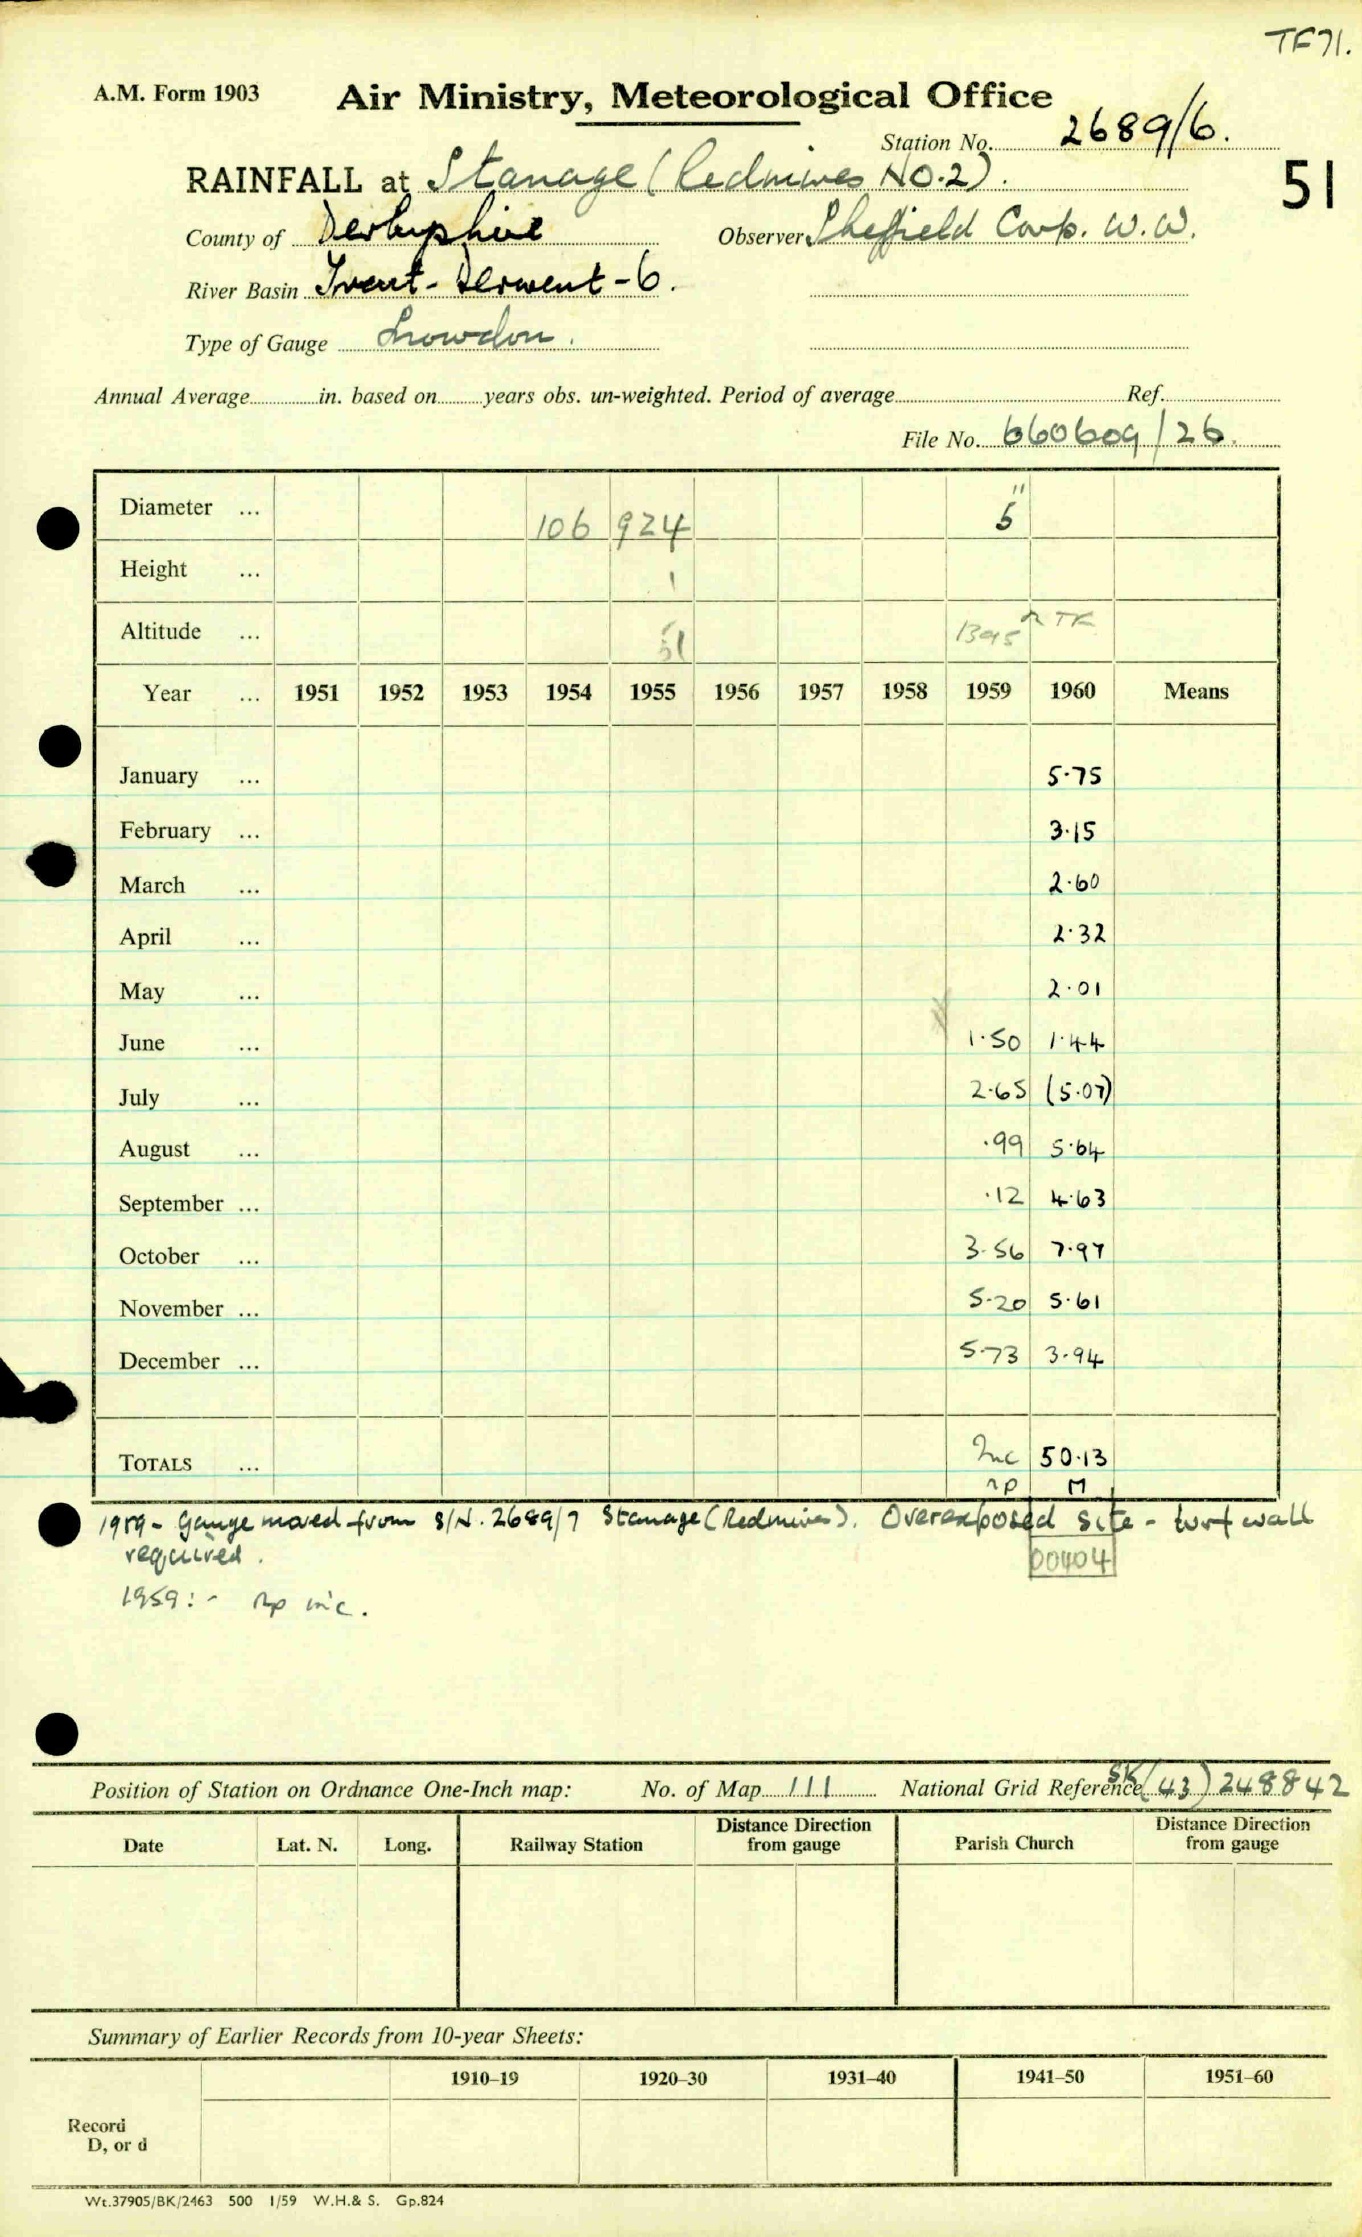 TF71.
A.M. Form 1903 Air Ministry, Meteorological Office
Station No. 2689/6.
RAINFALL at Stanage (Redmires NO.2). 51
County of Derbyshire Observer Sheffield Corp. W.W.
River Basin Trent - Derwent - 6.
Type of Gauge Snowdon.
Annual Average in. based on years obs. un-weighted. Period of average Ref.
File No. 660609/26.
Diameter ... 106 924 5"
Height ... 1
Altitude ... 51 1395 TF
Year ... 1951 1952 1953 1954 1955 1956 1957 1958 1959 1960 Means
January ... 5.75
February ... 3.15
March ... 2.60
April ... 2.32
May ... 2.01
June ... 1.50 1.44
July ... 2.65 (5.07)
August ... .99 5.64
September ... .12 4.63
October ... 3.56 7.97
November ... 5.20 5.61
December ... 5.73 3.94
TOTALS ... Inc 50.13
np M
1959 - Gauge moved from S/N. 2689/7 Stanage (Redmires). Overexposed site - turf wall
required.
00404
1959:- np inc.
Position of Station on Ordnance One-Inch map: No. of Map 111 National Grid Reference SK (43) 248842
Date Lat. N. Long. Railway Station Distance Direction from gauge Parish Church Distance Direction from gauge
Summary of Earlier Records from 10-year Sheets:
1910–19 1920–30 1931–40 1941–50 1951–60
Record
D, or d
Wt.37905/BK/2463 500 1/59 W.H.& S. Gp.824